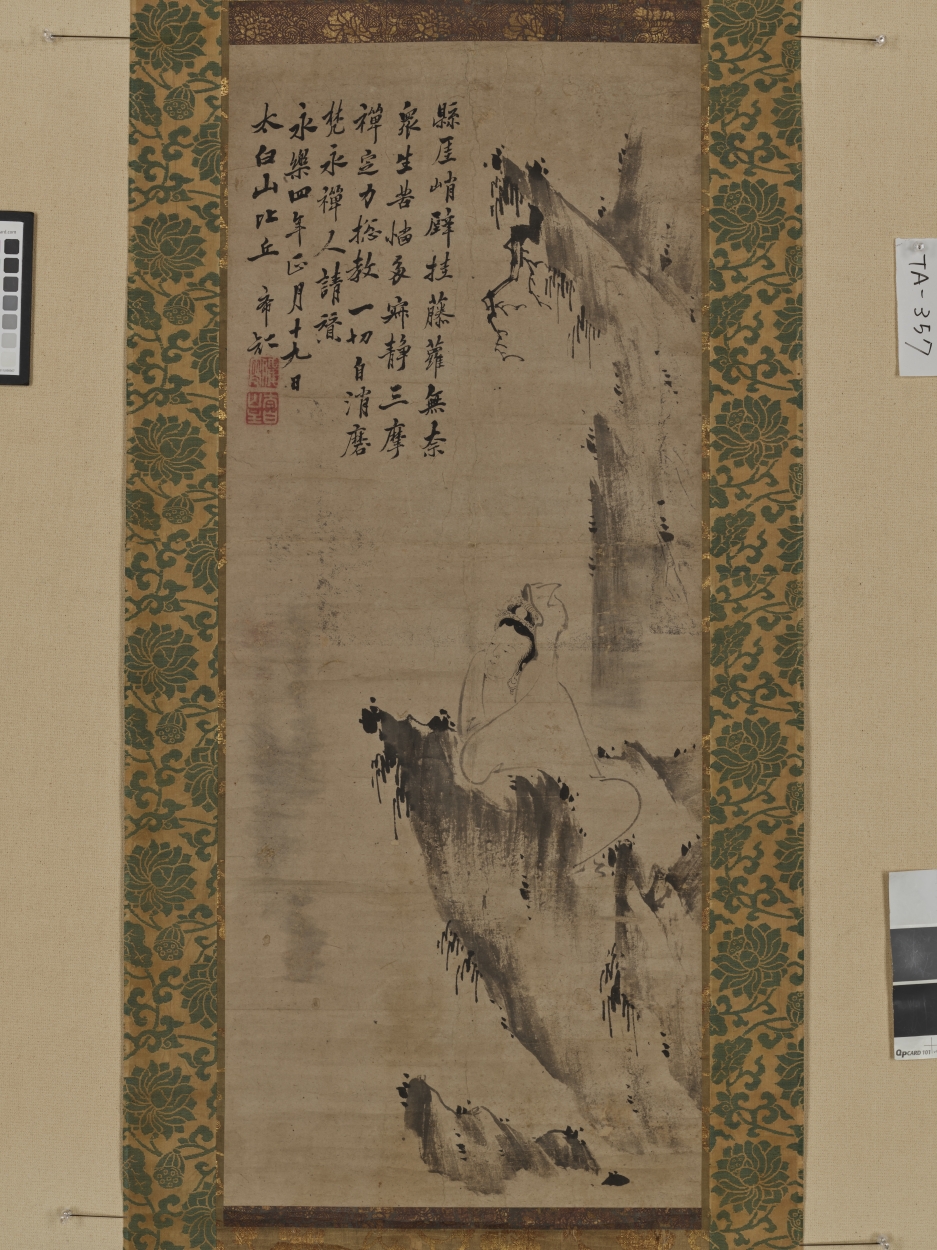 縣厓峭壁挂藤蘿無奈
衆生苦惱多寂靜三摩
禪定力捴教一切自消磨
梵永禪人請賛
永樂四年正月十九日
太白山比丘
TA-357
QPCARD 101